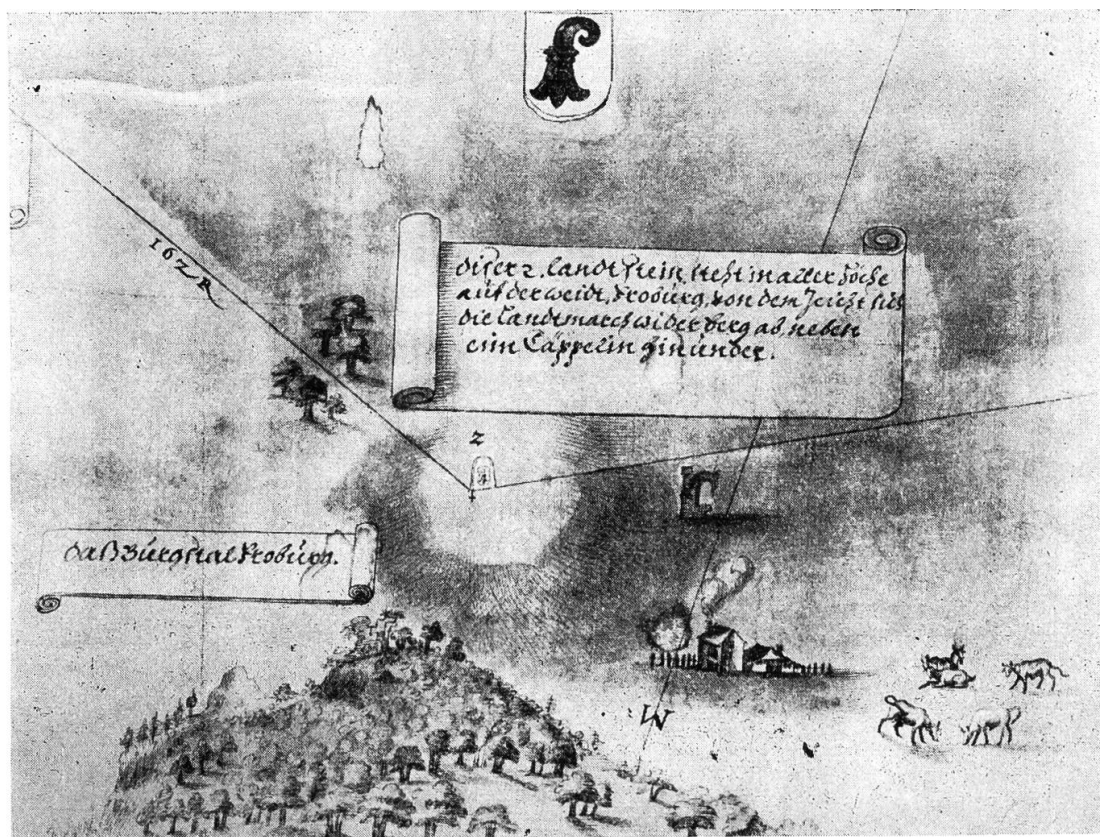 162 R
diser 2. landtstein steht in aller höche
auf der weidt, froburg, von dem Zeücht sich
die landtmarch wider berg ab neben
eim Cäppelin hinunder.
2
daß Bürgstal froburg.
W